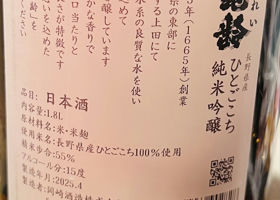 れい
齢
長野県産
ひとごこち
純米吟醸
年(1665年)創業
県の東部に
する上田にて
水系の良質な水を使い
めて
かな香りで
口当たりと
さが特徴です
いを込めた
齢」を
ください
品目:日本酒
内容量:1.8L
原材料名:米・米麹
使用米名:長野県産ひとごこち100%使用
精米歩合:55%
アルコール分:15度
製造年月:2025.4
製造者:岡崎酒造株式